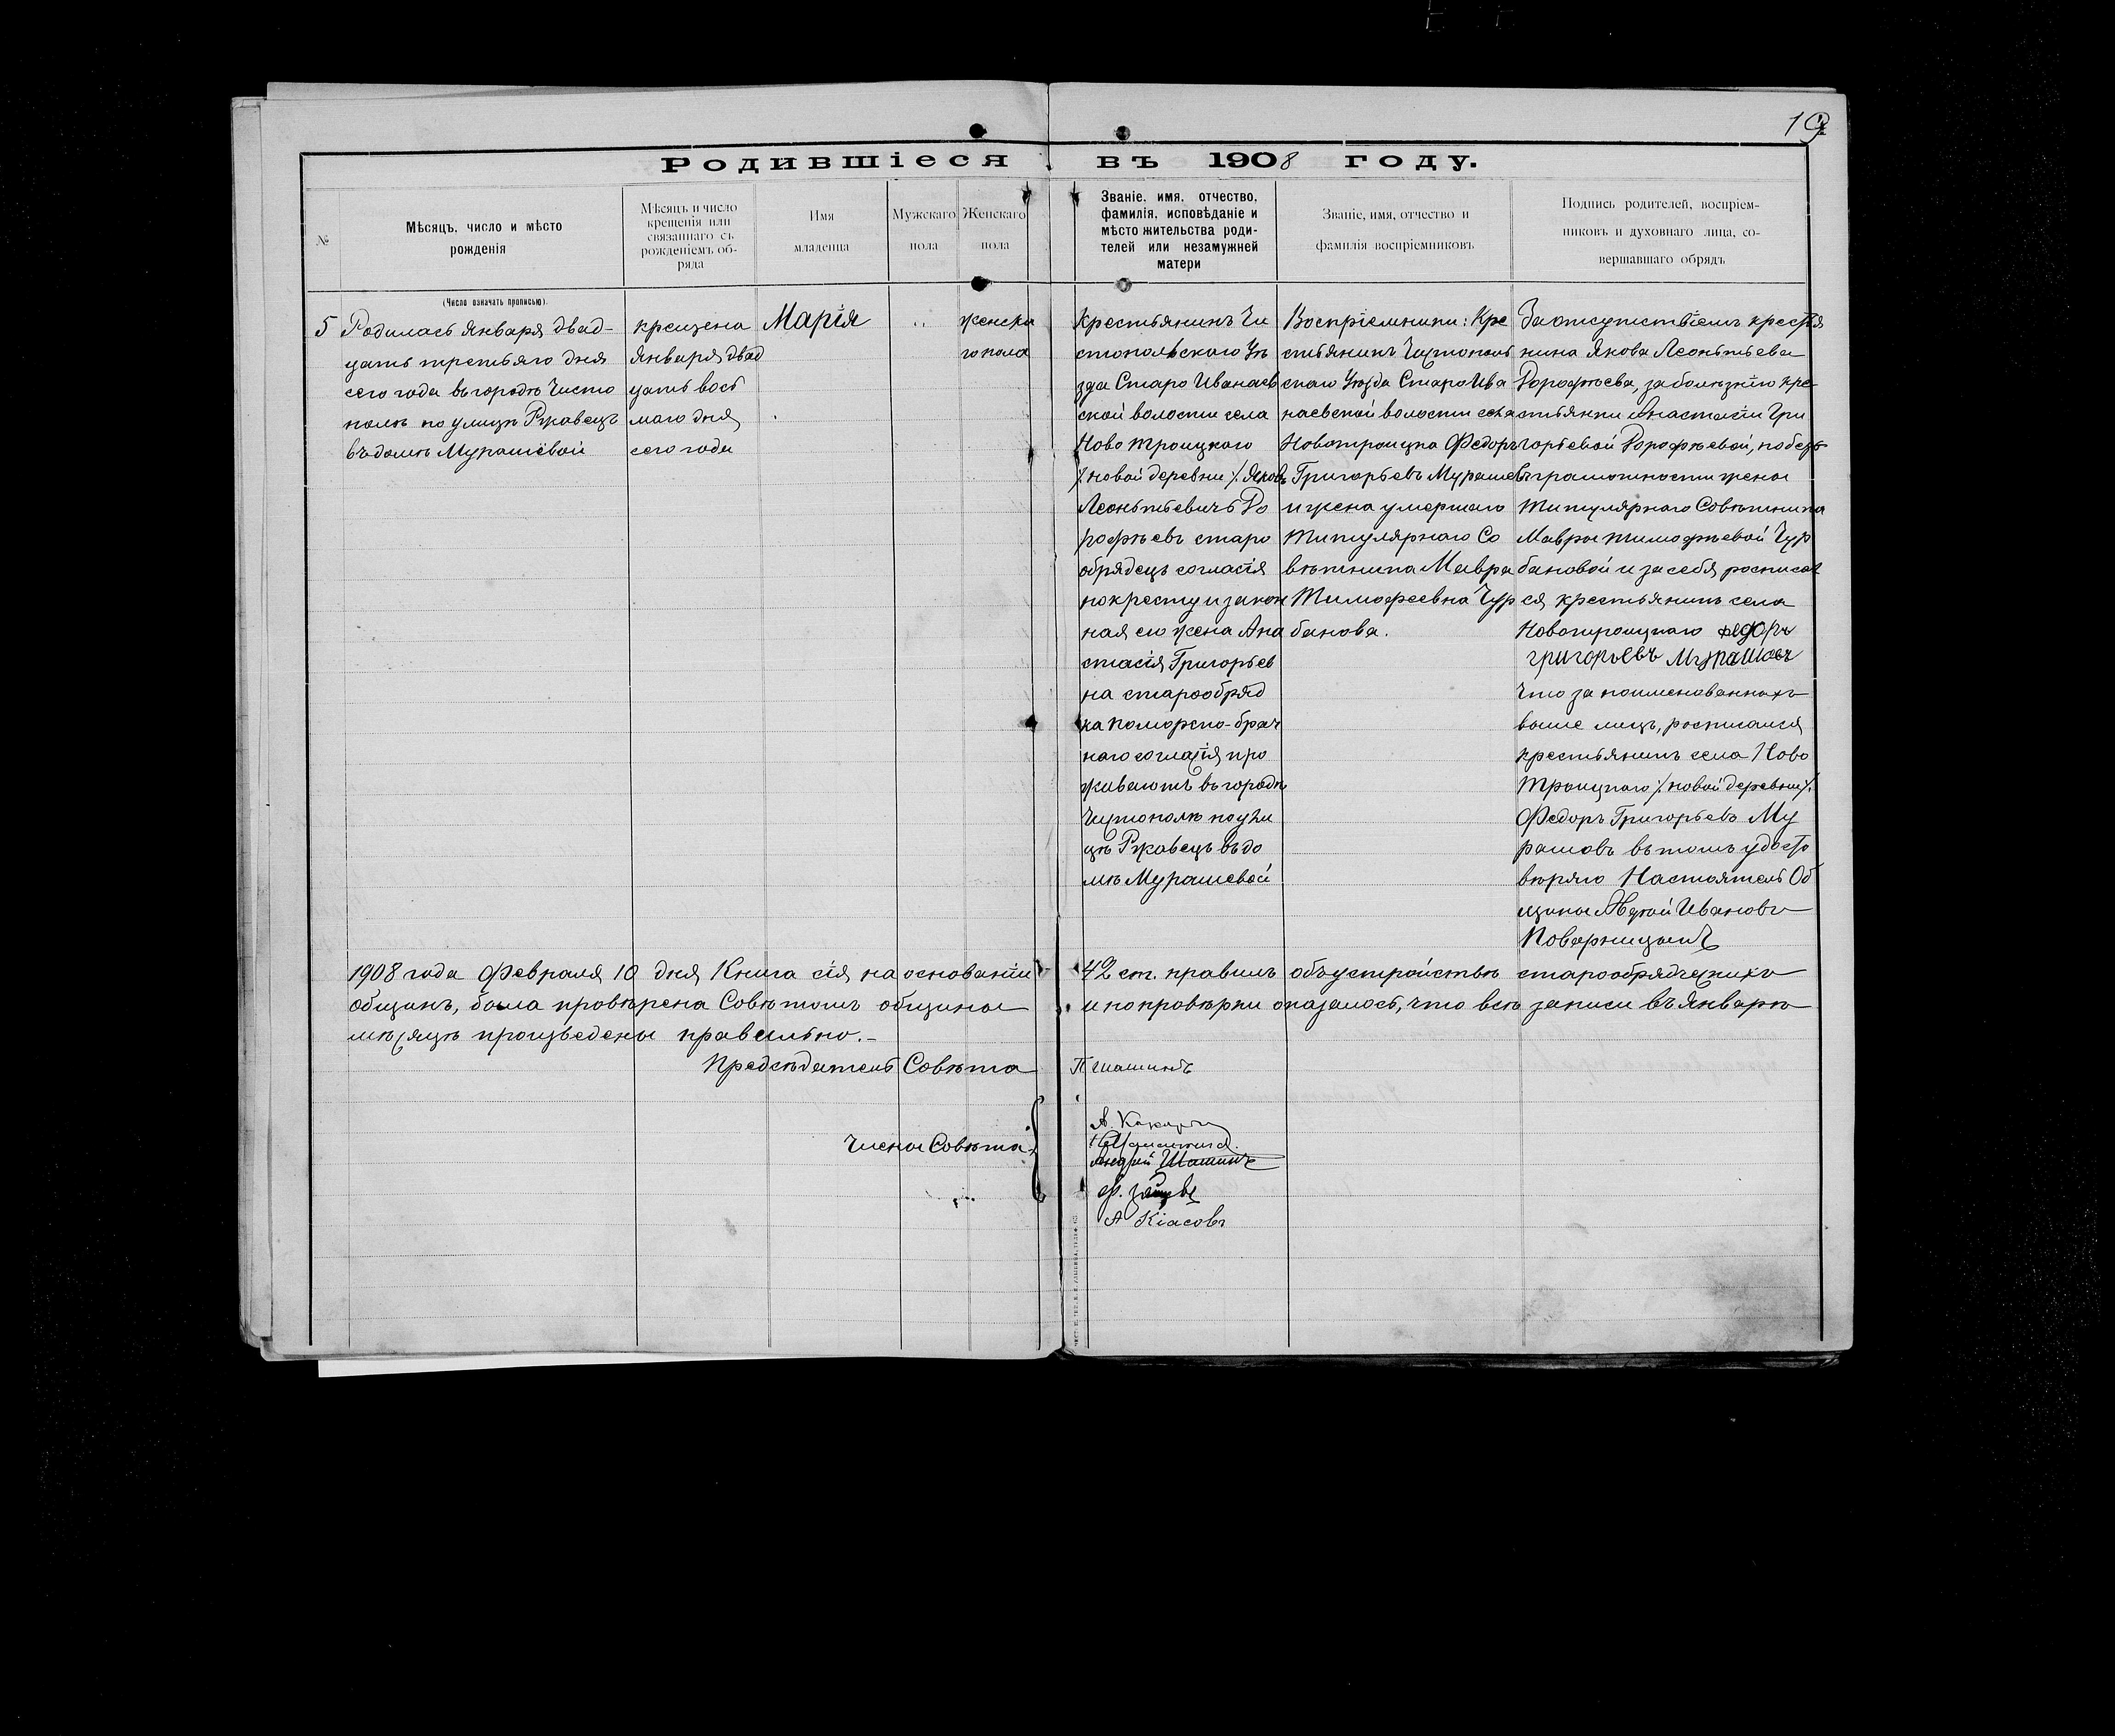 19
Родившіеся въ 1908 году.
№
Мѣсяцъ, число и мѣсто
рожденія
Мѣсяцъ и число
крещенія или
связаннаго съ
рожденіемъ об-
ряда
Имя
младенца
Мужскаго
пола
Женскаго
пола
Званіе, имя, отчество,
фамилія, исповѣданіе и
мѣсто жительства роди-
телей или незамужней
матери
Званіе, имя, отчество и
фамилія воспріемниковъ
Подпись родителей, воспріем-
никовъ и духовнаго лица, со-
вершавшаго обрядъ
(Число означать прописью).
5
Родилась Января двад-
цать третьяго дня
сего года въ городѣ Чисто
полѣ по улицѣ Ржавецъ
въ домѣ Мурашёвой
крещена
Января двад
цать вось
маго дня
сего года
Марія
женска
го пола
Крестьянинъ Чи
стопольскаго Уѣ
зда Старо Иванаев
ской волости села
Ново Троицкаго
/.новой деревни/. Яковъ
Леонтьевичъ До
рофѣевъ старо
обрядецъ согласія
по кресту и закон
ная его жена Ана
стасія Григорьев
на старообряд
ка поморско-брач
наго согласія про
живаютъ въ городѣ
Чистополѣ по ули
цѣ Ржавецъ въ до
мѣ Мурашевой
Воспріемники: Кре
стьянинъ Чистополь
скаго Уѣзда Старо Ива
наевской волости села
Новотроицка Федоръ
Григорьевъ Мурашевъ
и жена умершаго
Титулярнаго Со
вѣтника Мавра
Тимофеевна Чур
банова.
За отсутствіемъ крестья
нина Якова Леонтьева
Дорофѣева, за болѣзнію кре
стьянки Анастасіи Гри
горьевой Дорофѣевой, по без
грамотности жены
Титулярнаго Совѣтника
Мавры Тимофѣевой Чур
бановой и за себя росписал
ся крестьянинъ села
Новотроицкаго Федоръ
Григорьевъ Мурашовъ
Что за поименованныхъ
выше лицъ, росписался
крестьянинъ села Ново
Троицкаго /.новой деревни/.
Федоръ Григорьевъ Му
рашовъ въ томъ удосто
вѣряю Настоятель Об
щины Иванов
Поварницынъ
1908 года Февраля 10 дня Книга сія на основаніи 42 ст. правилъ объ устройствѣ старообрядческихъ
общинъ, была провѣрена Совѣтомъ общины и по провѣрки оказалось, что всѣ записи въ Январѣ
мѣсяцѣ произведены правильно.-
Предсѣдатель Совѣта П Шашинъ
Члены Совѣта:
Андрей Шашинъ
А Кіасовъ